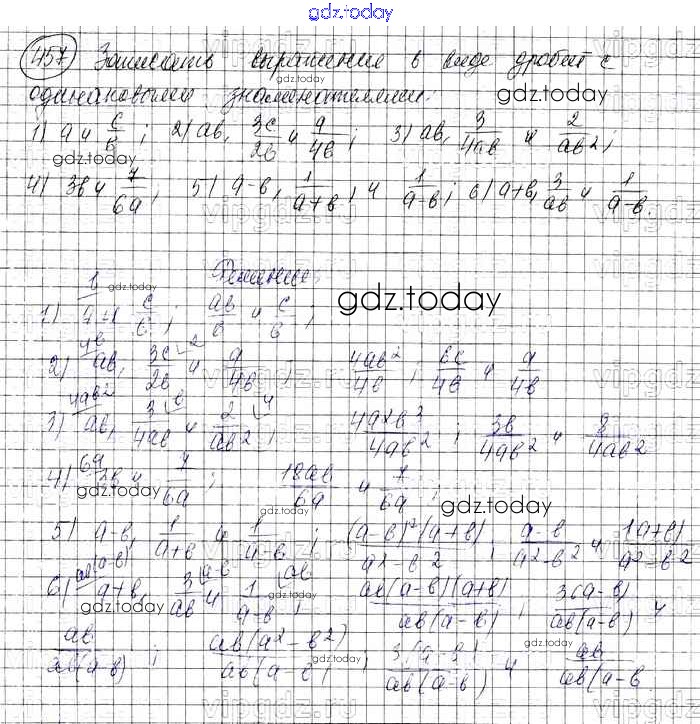 gdz.today
457 Записать выражение в виде дробей с
одинаковыми знаменателями.
1) a и c/b; 2) ab, 3c/2b и a/4b; 3) ab, 3/4ab и 2/ab²;
4) 3b и 7/6a; 5) a-b, 1/a+b, и 1/a-b; 6) a+b, 3/ab и 1/a-b.
Решение.
1) a и c/b; ab/b и c/b;
2) ab, 3c/2b и a/4b; 4ab²/4b; 6c/4b и a/4b
3) ab, 3/4ab и 2/ab²; 4a²b³/4ab²; 3b/4ab² и 8/4ab²
4) 3b и 7/6a; 18ab/6a и 7/6a;
5) a-b, 1/a+b и 1/a-b; (a-b)²(a+b)/a²-b²; a-b/a²-b² и (a+b)/a²-b²
6) a+b, 3/ab и 1/a-b; ab(a-b)(a+b)/ab(a-b); 3(a-b)/ab(a-b) и
ab/ab(a-b); ab(a²-b²)/ab(a-b); 3(a-b)/ab(a-b) и ab/ab(a-b